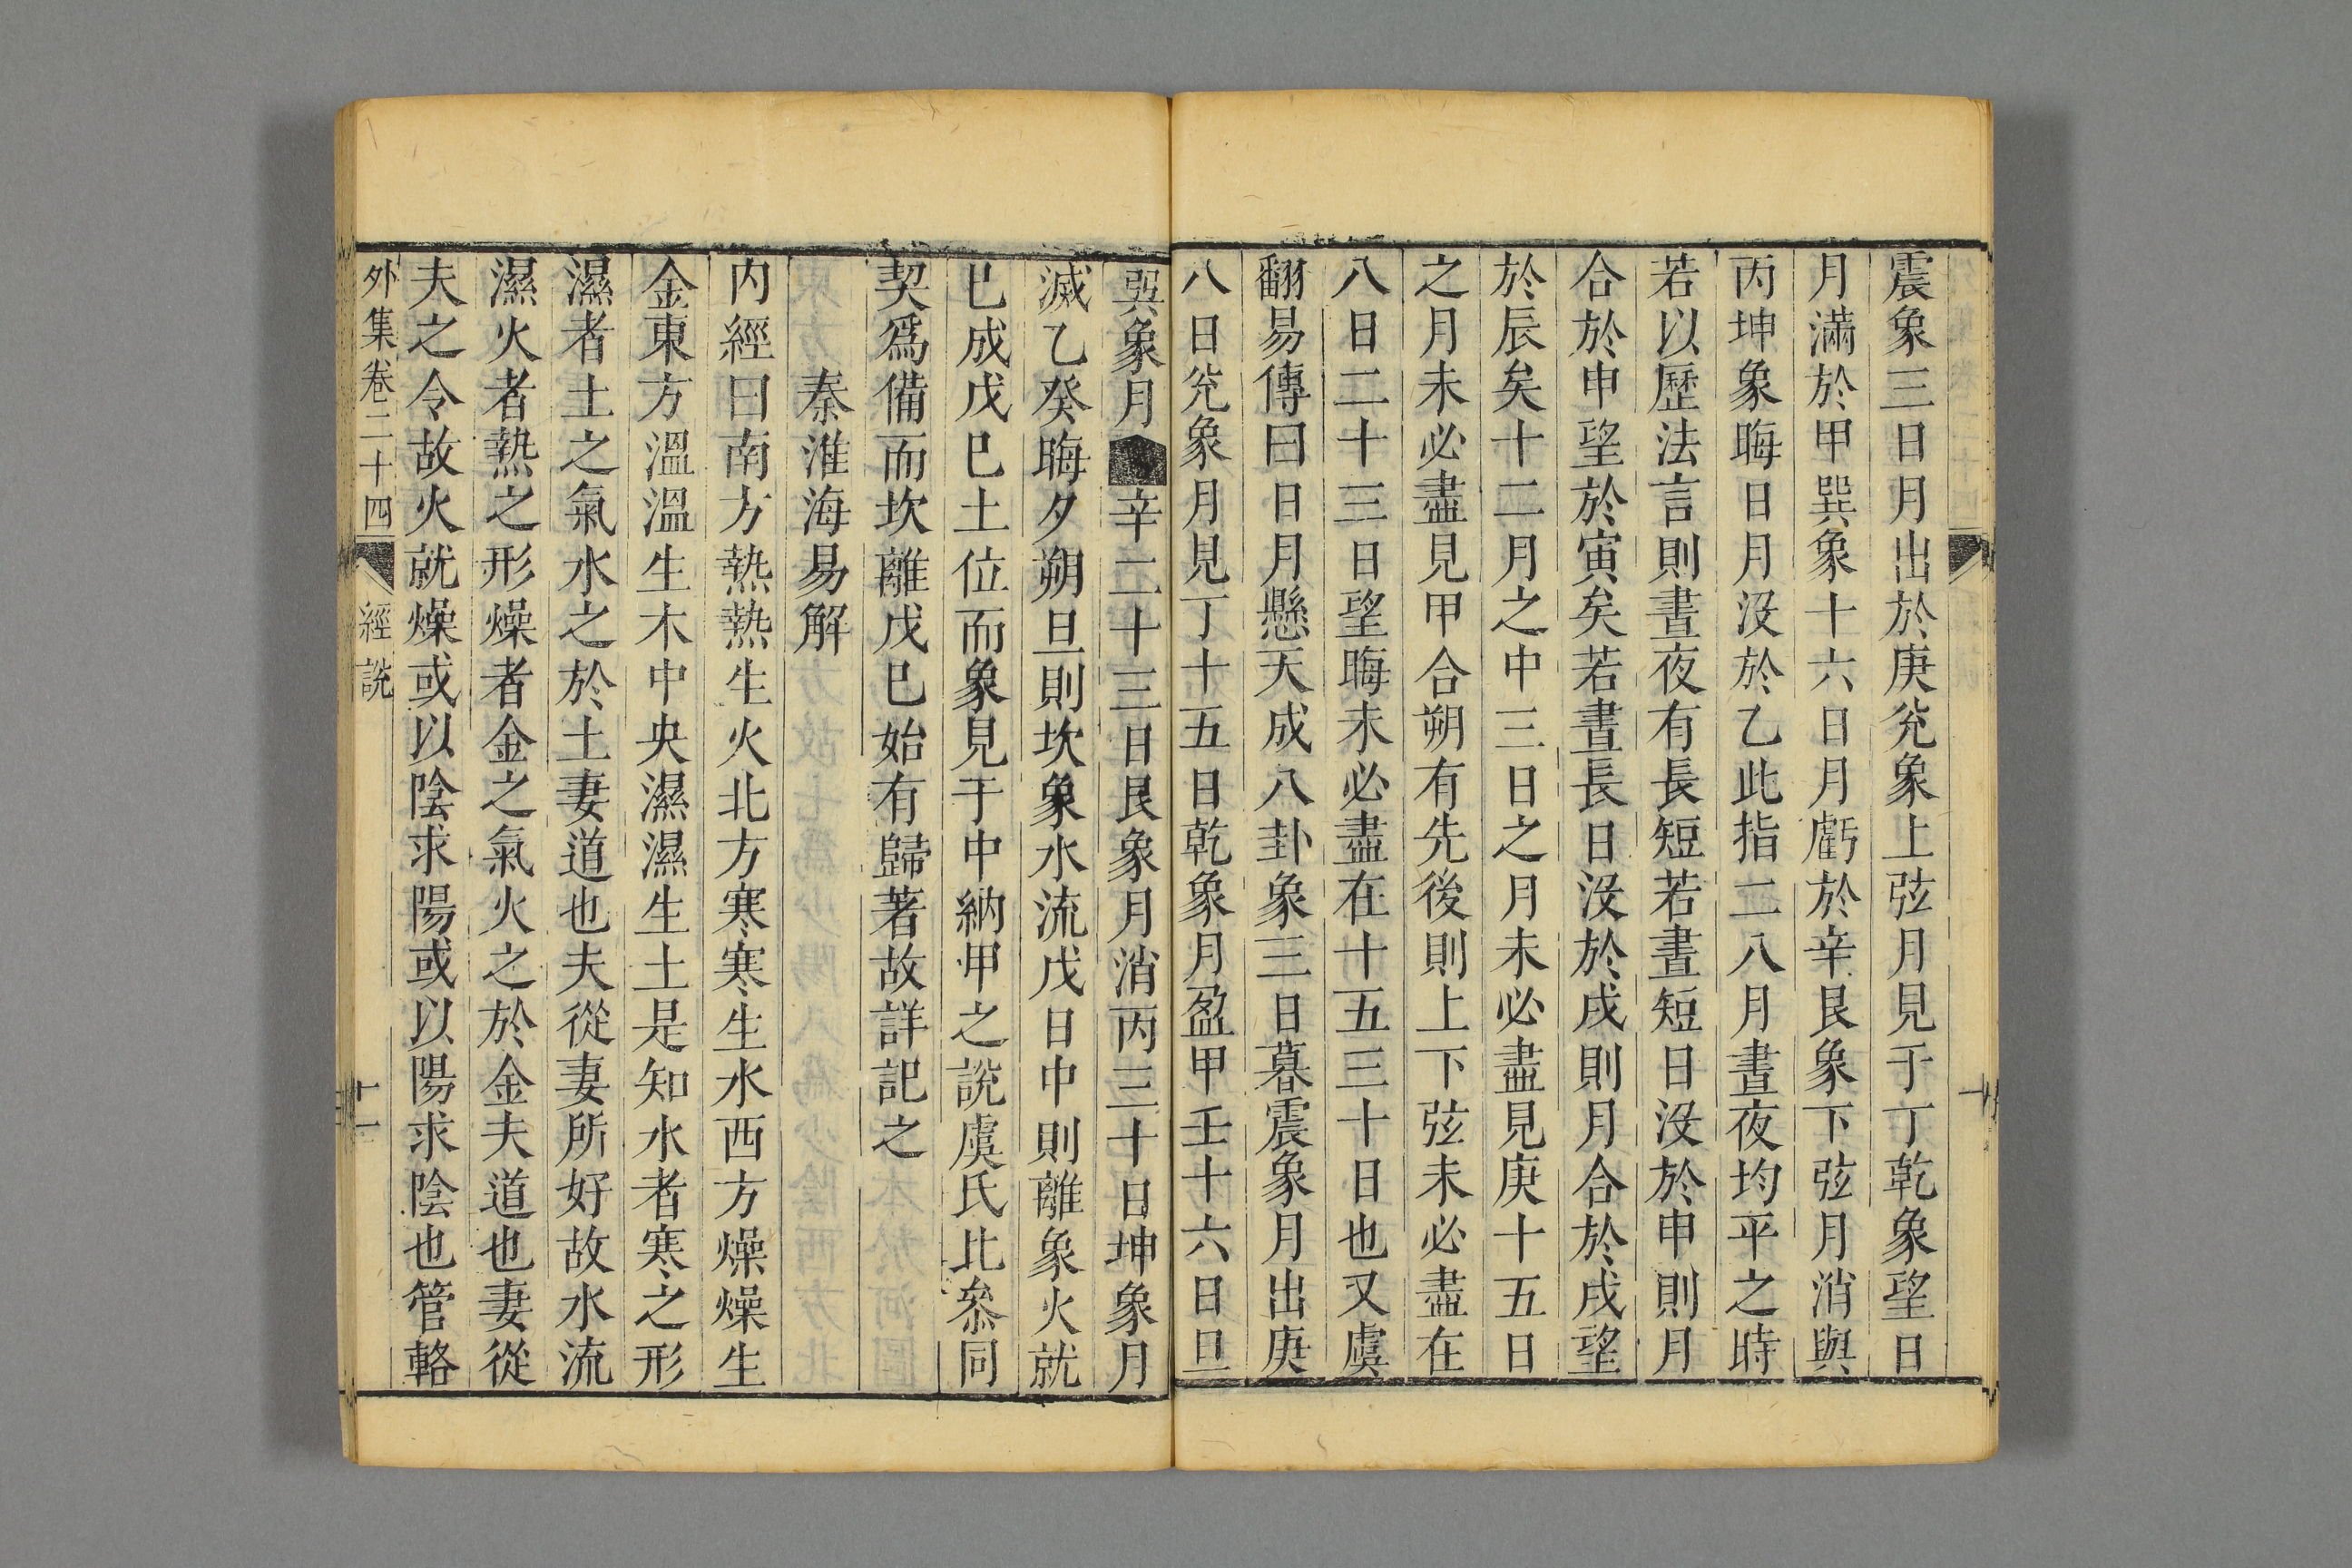 震象三日月出於庚兊象上弦月見于丁乾象望日
月滿於甲巽象十六日月虧於辛艮象下弦月消與
丙坤象晦日月没於乙此指二八月晝夜均平之時
若以歷法言則晝夜有長短若晝短日没於申則月
合於申望於寅矣若晝長日没於戌則月合於戌望
於辰矣十二月之中三日之月未必盡見庚十五日
之月未必盡見甲合朔有先後則上下弦未必盡在
八日二十三日望晦未必盡在十五三十日也又虞
翻易傳曰日月懸天成八卦象三日暮震象月出庚
八日兊象月見丁十五日乾象月盈甲壬十六日旦
巽象月辛二十三日艮象月消丙三十日坤象月
滅乙癸晦夕朔旦則坎象水流戊日中則離象火就
巳成戊巳土位而象見于中納甲之說虞氏比叅同
契爲備而坎離戊巳始有歸著故詳記之
秦淮海易解
内經曰南方熱熱生火北方寒寒生水西方燥燥生
金東方溫溫生木中央濕濕生土是知水者寒之形
濕者土之氣水之於土妻道也夫從妻所好故水流
濕火者熱之形燥者金之氣火之於金夫道也妻從
夫之令故火就燥或以陰求陽或以陽求陰也管輅
外集卷二十四 經說 十一